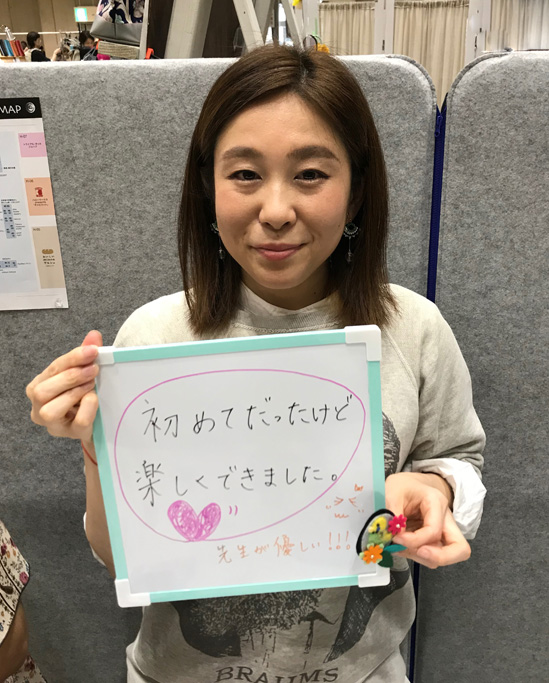 MAP
初めてだったけど
楽しくできました。
先生が優しい!!!
BRAHMS